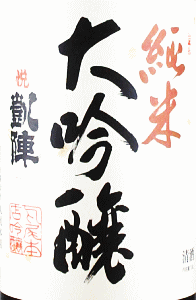 純米
大吟醸
悦
凱陣
清酒